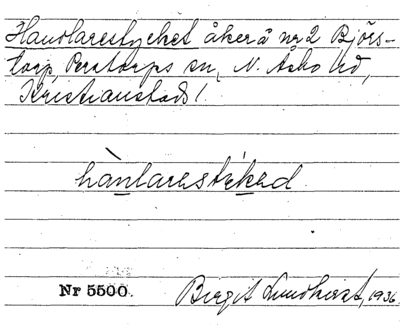 Handlarestycket åker å nr 2 Björs-
torp, Perstorps sn, N. Åsbo hd,
Kristianstads l.
hànlarestýked.
Nr 5500. Birgit Lundkvist, 1936.